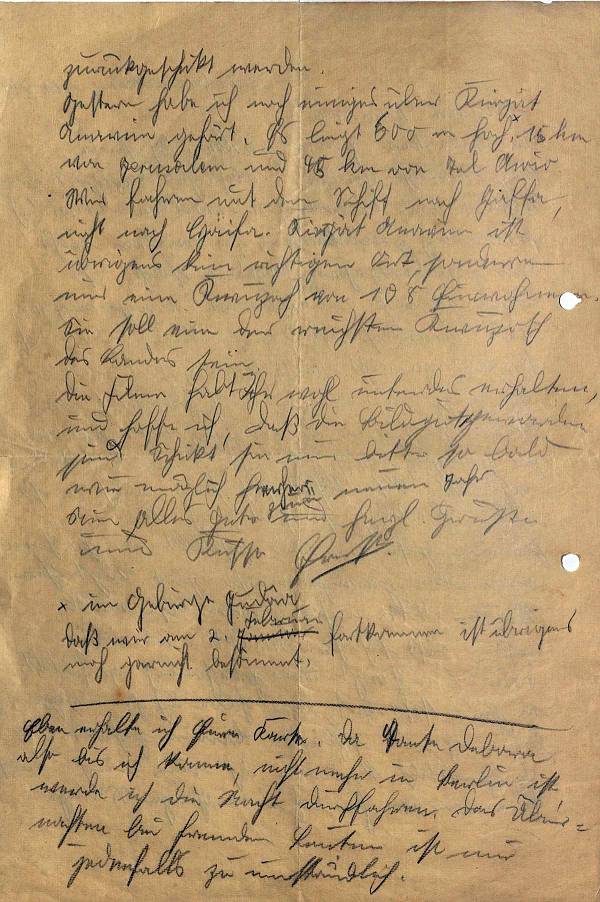 zurückgeschickt werden.
Gestern habe ich noch einiges über Kirjat
Anavim gehört. Es liegt 800 m hoch,× 15 km
von Jerusalem und 45 km von Tel Awiv
Wir fahren mit dem Schiff nach Jaffa,
nicht nach Haifa. Kirjat Anavim ist
übrigens kein richtiger Ort, sondern
nur eine Kwuzah von 108 Einwohnern.
Sie soll eine der reichsten Kwuzoth
des Landes sein.
Die Filme habt Ihr wohl inzwischen erhalten,
und hoffe ich, daß die Bilder geworden
sind. Schickt sie mir bitte so bald
wie möglich her. neuen Jahr
Nun alles Gute und herzl. Grüße
und Küsse Ernst.
× im Gebirge Judäa
daß wir am 2. Februar fortkommen ist übrigens
noch garnicht bestimmt.
Eben erhalte ich Eure Karte. Da Tante Debora
also bis ich komme, nicht mehr in Berlin ist
werde ich die Nacht durchfahren. Das Über=
nachten bei fremden Leuten ist mir
jedenfalls zu umständlich.